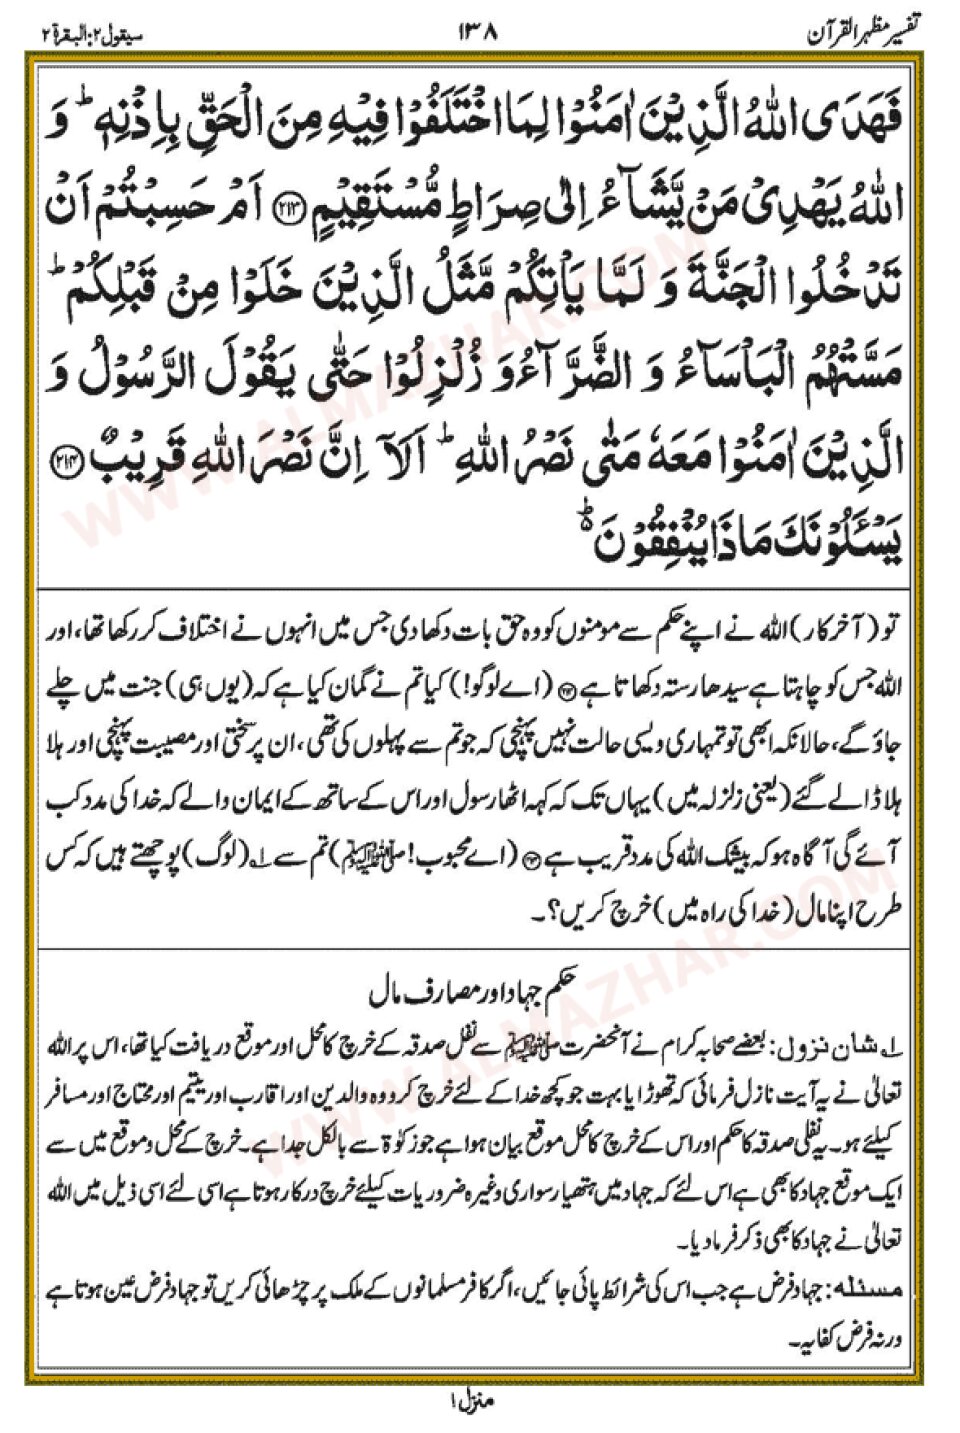 تفسیر مظہر القرآن
۱۳۸
سیقول ۲: البقرة ۲
فَهَدَى اللّٰهُ الَّذِيْنَ اٰمَنُوْا لِمَا اخْتَلَفُوْا فِيْهِ مِنَ الْحَقِّ بِاِذْنِهٖ ؕ وَ
اللّٰهُ يَهْدِىْ مَنْ يَّشَآءُ اِلٰى صِرَاطٍ مُّسْتَقِيْمٍ ﴿۲۱۳﴾ اَمْ حَسِبْتُمْ اَنْ
تَدْخُلُوا الْجَنَّةَ وَ لَمَّا يَاْتِكُمْ مَّثَلُ الَّذِيْنَ خَلَوْا مِنْ قَبْلِكُمْ ؕ
مَسَّتْهُمُ الْبَاْسَآءُ وَ الضَّرَّآءُ وَ زُلْزِلُوْا حَتّٰى يَقُوْلَ الرَّسُوْلُ وَ
الَّذِيْنَ اٰمَنُوْا مَعَهٗ مَتٰى نَصْرُ اللّٰهِ ؕ اَلَاۤ اِنَّ نَصْرَ اللّٰهِ قَرِيْبٌ ﴿۲۱۴﴾
يَسْـَٔلُوْنَكَ مَاذَا يُنْفِقُوْنَ ؕ
تو (آخر کار) اللہ نے اپنے حکم سے مومنوں کو وہ حق بات دکھا دی جس میں انہوں نے اختلاف کر رکھا تھا، اور
اللہ جس کو چاہتا ہے سیدھا رستہ دکھاتا ہے ﴿۲۱۳﴾ (اے لوگو!) کیا تم نے گمان کیا ہے کہ (یوں ہی) جنت میں چلے
جاؤ گے، حالانکہ ابھی تو تمہاری ویسی حالت نہیں پہنچی کہ جو تم سے پہلوں کی تھی، ان پر سختی اور مصیبت پہنچی اور ہلا
ہلا ڈالے گئے (یعنی زلزلہ میں) یہاں تک کہ کہہ اٹھا رسول اور اس کے ساتھ کے ایمان والے کہ خدا کی مدد کب
آئے گی آگاہ ہو کہ بیشک اللہ کی مدد قریب ہے ﴿۲۱۴﴾ (اے محبوب! ﷺ) تم سے ۱؎ (لوگ) پوچھتے ہیں کہ کس
طرح اپنا مال (خدا کی راہ میں) خرچ کریں؟۔
حکم جہاد اور مصارف مال
۱؎ شان نزول: بعضے صحابہ کرام نے آنحضرت ﷺ سے نفل صدقہ کے خرچ کا محل اور موقع دریافت کیا تھا، اس پر اللہ
تعالیٰ نے یہ آیت نازل فرمائی کہ تھوڑا یا بہت جو کچھ خدا کے لئے خرچ کرو وہ والدین اور اقارب اور یتیم اور محتاج اور مسافر
کیلئے ہو۔ یہ نفلی صدقہ کا حکم اور اس کے خرچ کا محل موقع بیان ہوا ہے جو زکوٰۃ سے بالکل جدا ہے۔ خرچ کے محل و موقع میں سے
ایک موقع جہاد کا بھی ہے اس لئے کہ جہاد میں ہتھیار سواری وغیرہ ضروریات کیلئے خرچ درکار ہوتا ہے اسی لئے اسی ذیل میں اللہ
تعالیٰ نے جہاد کا بھی ذکر فرما دیا۔
مسئلہ: جہاد فرض ہے جب اس کی شرائط پائی جائیں، اگر کافر مسلمانوں کے ملک پر چڑھائی کریں تو جہاد فرض عین ہوتا ہے
ورنہ فرض کفایہ۔
منزل ۱
WWW.ALMAZHAR.COM
WWW.ALMAZHAR.COM